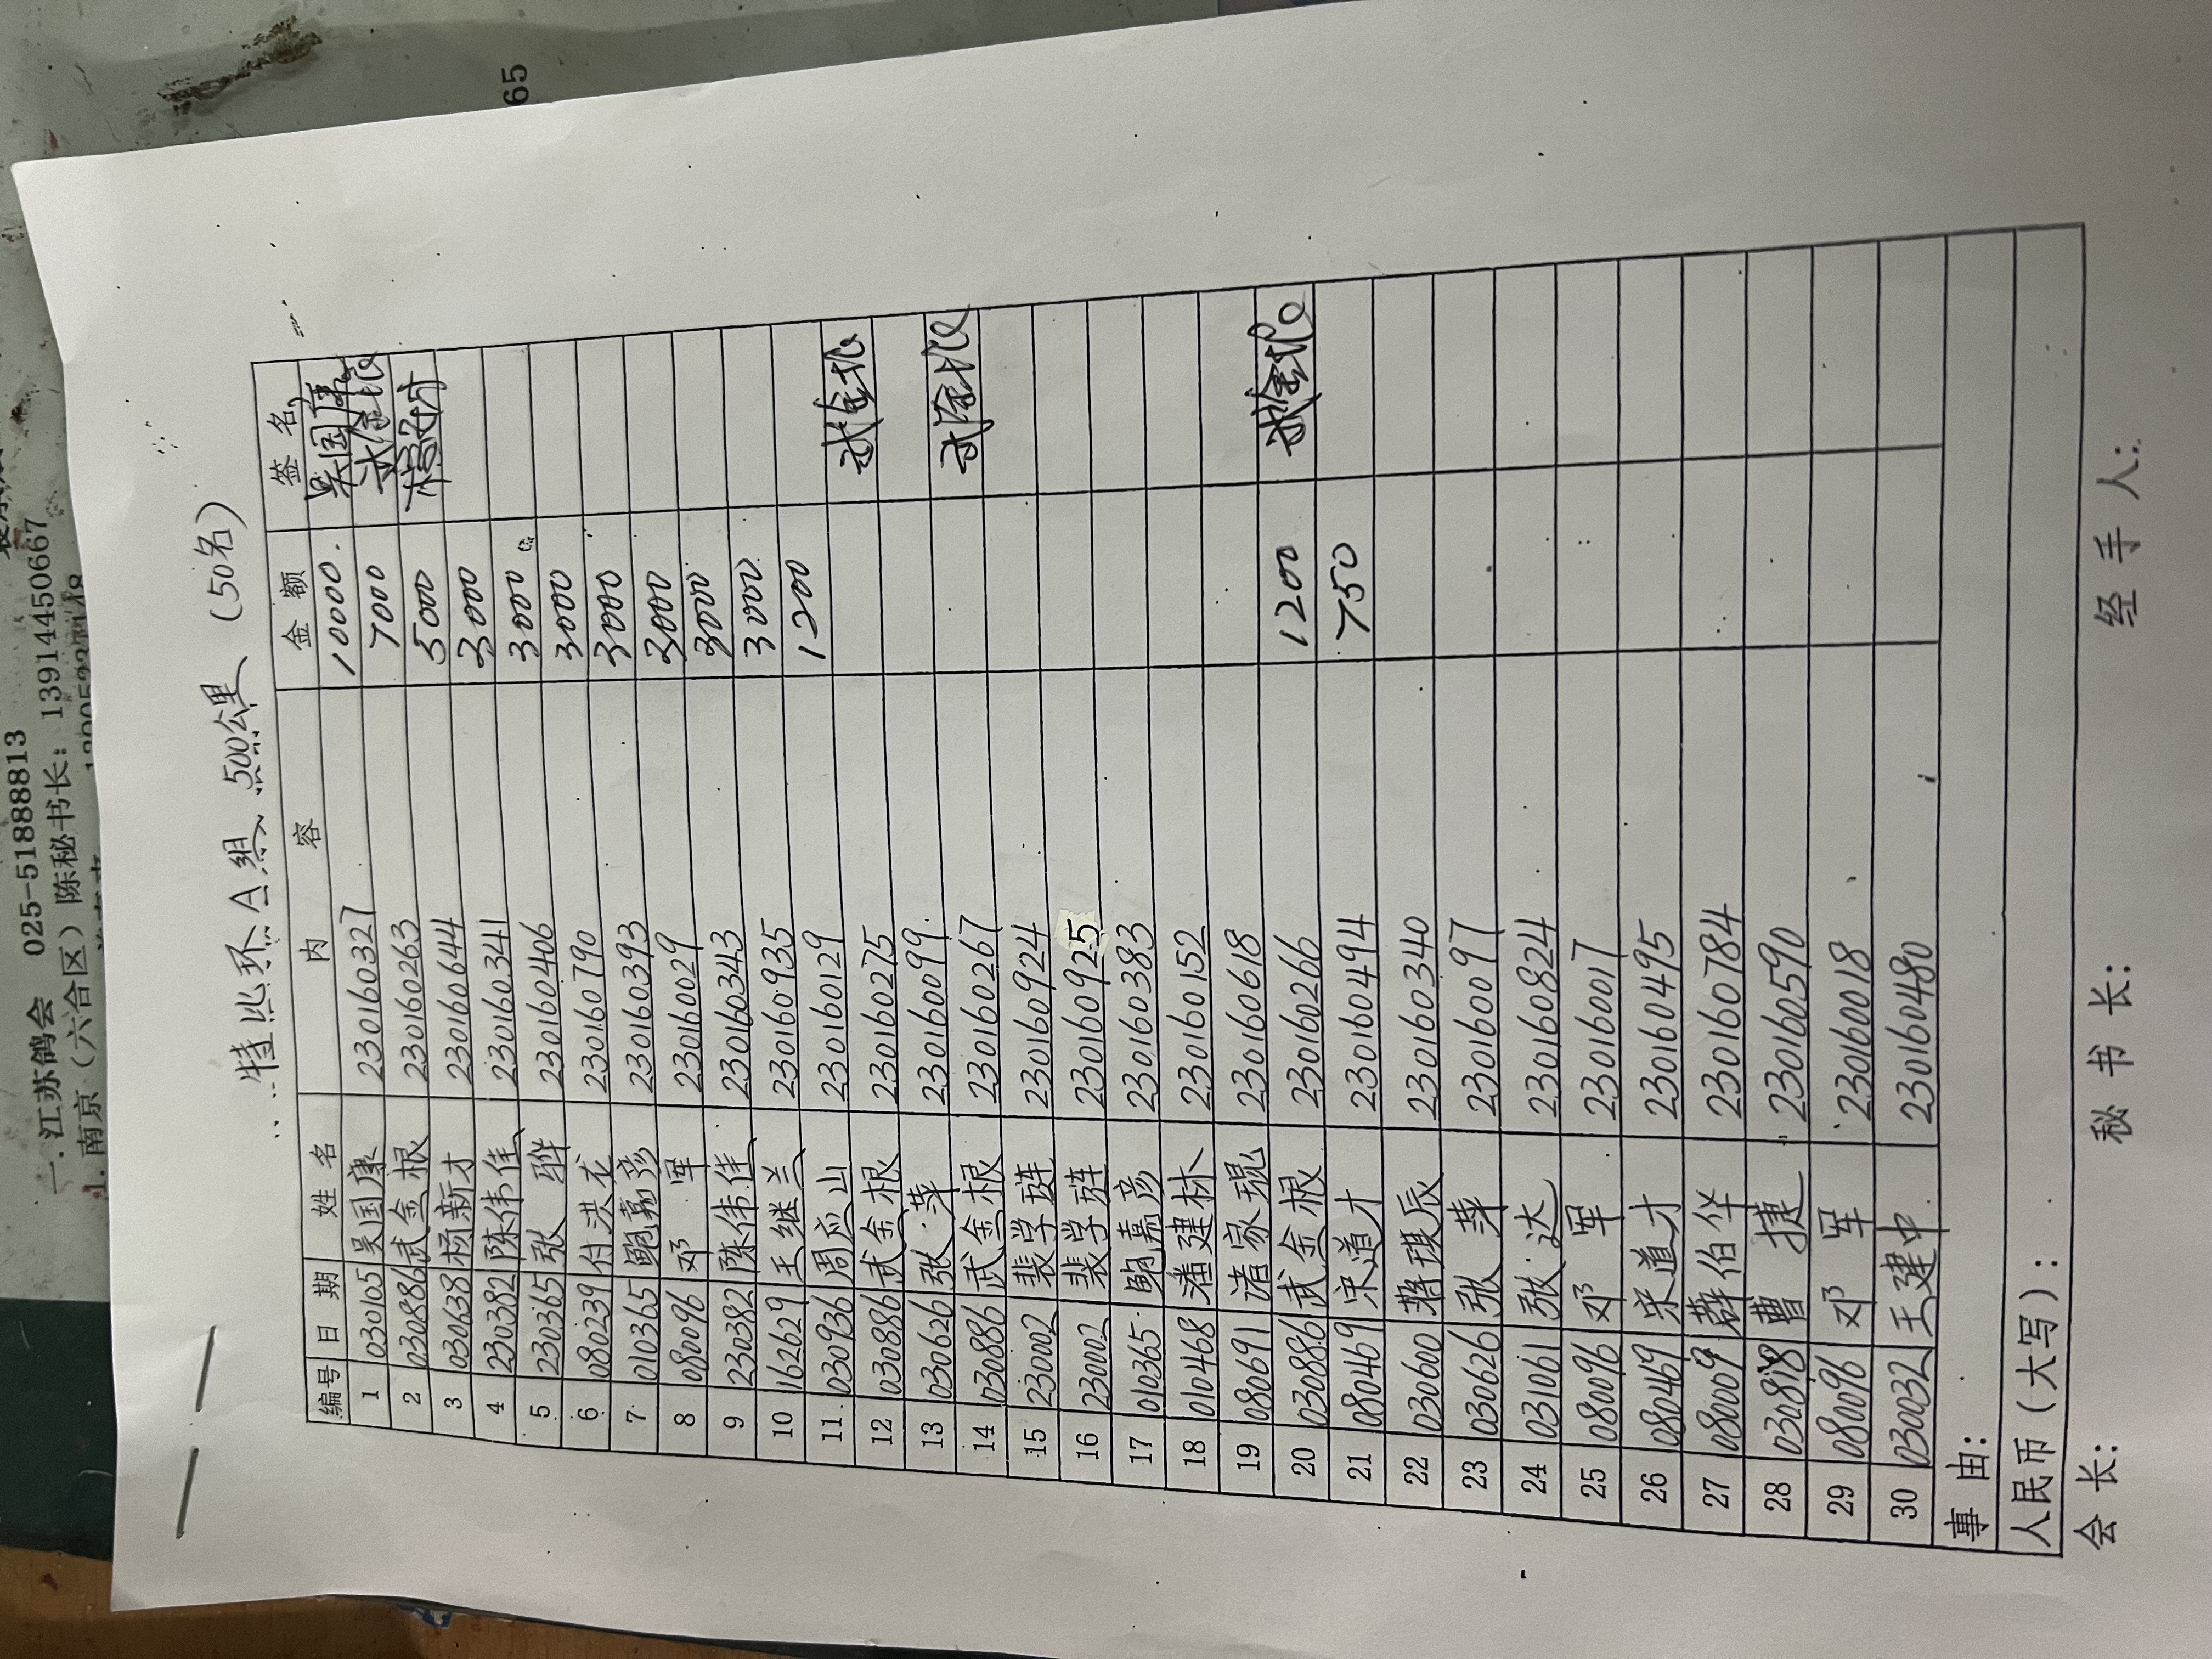 一.江苏鸽会 025-51888813
1.南京（六合区）陈秘书长：13914450667
65
特比环A组 500公里（50名）
编号 日期 姓名 内容 金额 签名
1 030105 吴国康 230160327 10000. 吴国康
2 030886 武金根 230160263 7000 武金根
3 030638 杨新才 230160644 5000
4 230382 陈伟佳 230160341 3000
5 230365 张骅 230160406 3000
6 080239 付洪龙 230160790 3000
7 010365 鲍嘉彦 230160393 3000
8 080096 邓军 230160029 3000
9 230382 陈伟佳 230160343 3000
10 162629 王继兰 230160935 3000
11 030936 周应山 230160129 1200
12 030886 武金根 230160275 武金根
13 030626 张萍 230160099
14 030886 武金根 230160267 武金根
15 230002 裴学琏 230160924
16 230002 裴学琏 230160925
17 010365 鲍嘉彦 230160383
18 010468 潘建林 230160152
19 080691 诸家琨 230160618
20 030886 武金根 230160266 1200 武金根
21 080469 宋道才 230160494 750
22 030600 蒋琪辰 230160340
23 030626 张萍 230160097
24 031061 张达 230160824
25 080096 邓军 230160017
26 080469 宋道才 230160495
27 080009 薛伯伴 230160784
28 030818 曹捷 230160590
29 080096 邓军 230160018
30 030032 王建中 230160480
事由：
人民币（大写）：
会长： 秘书长： 经手人：